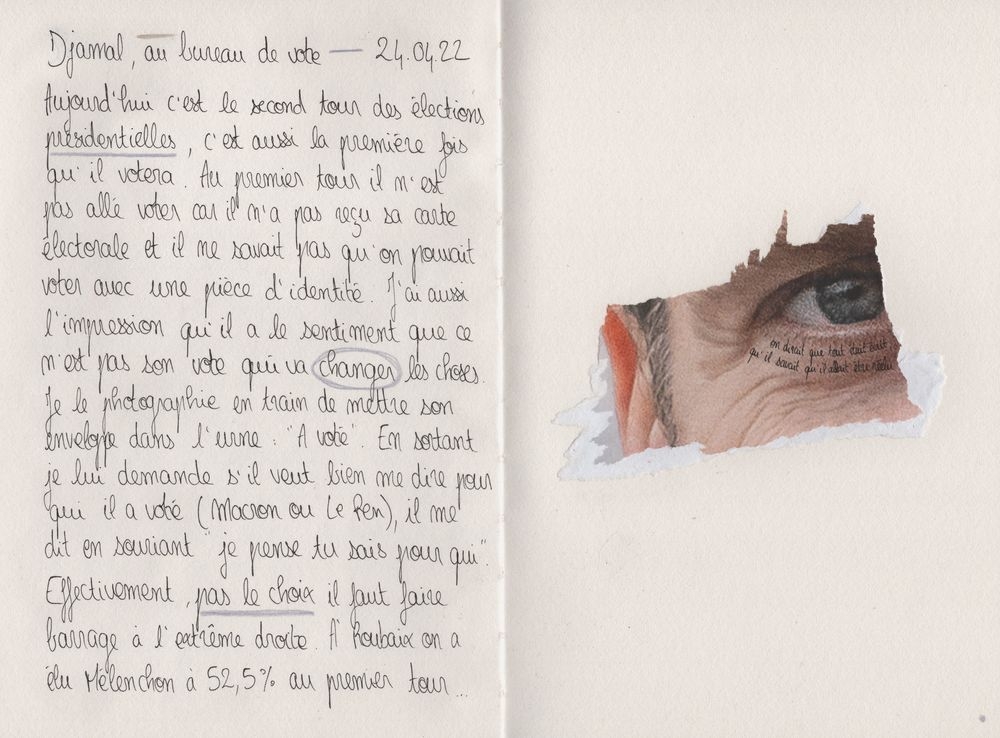 Djamal, au bureau de vote — 24.04.22
Aujourd'hui c'est le second tour des élections
présidentielles, c'est aussi la première fois
qu'il votera. Au premier tour il n'est
pas allé voter car il n'a pas reçu sa carte
électorale et il ne savait pas qu'on pouvait
voter avec une pièce d'identité. J'ai aussi
l'impression qu'il a le sentiment que ce
n'est pas son vote qui va changer les choses.
Je le photographie en train de mettre son
enveloppe dans l'urne : "A voté". En sortant
je lui demande s'il veut bien me dire pour
qui il a voté (Macron ou Le Pen), il me
dit en souriant "je pense tu sais pour qui".
Effectivement, pas le choix il faut faire
barrage à l'extrême droite. À Roubaix on a
élu Mélenchon à 52,5% au premier tour...
on dirait que tout était écrit
qu'il savait qu'il allait être réélu